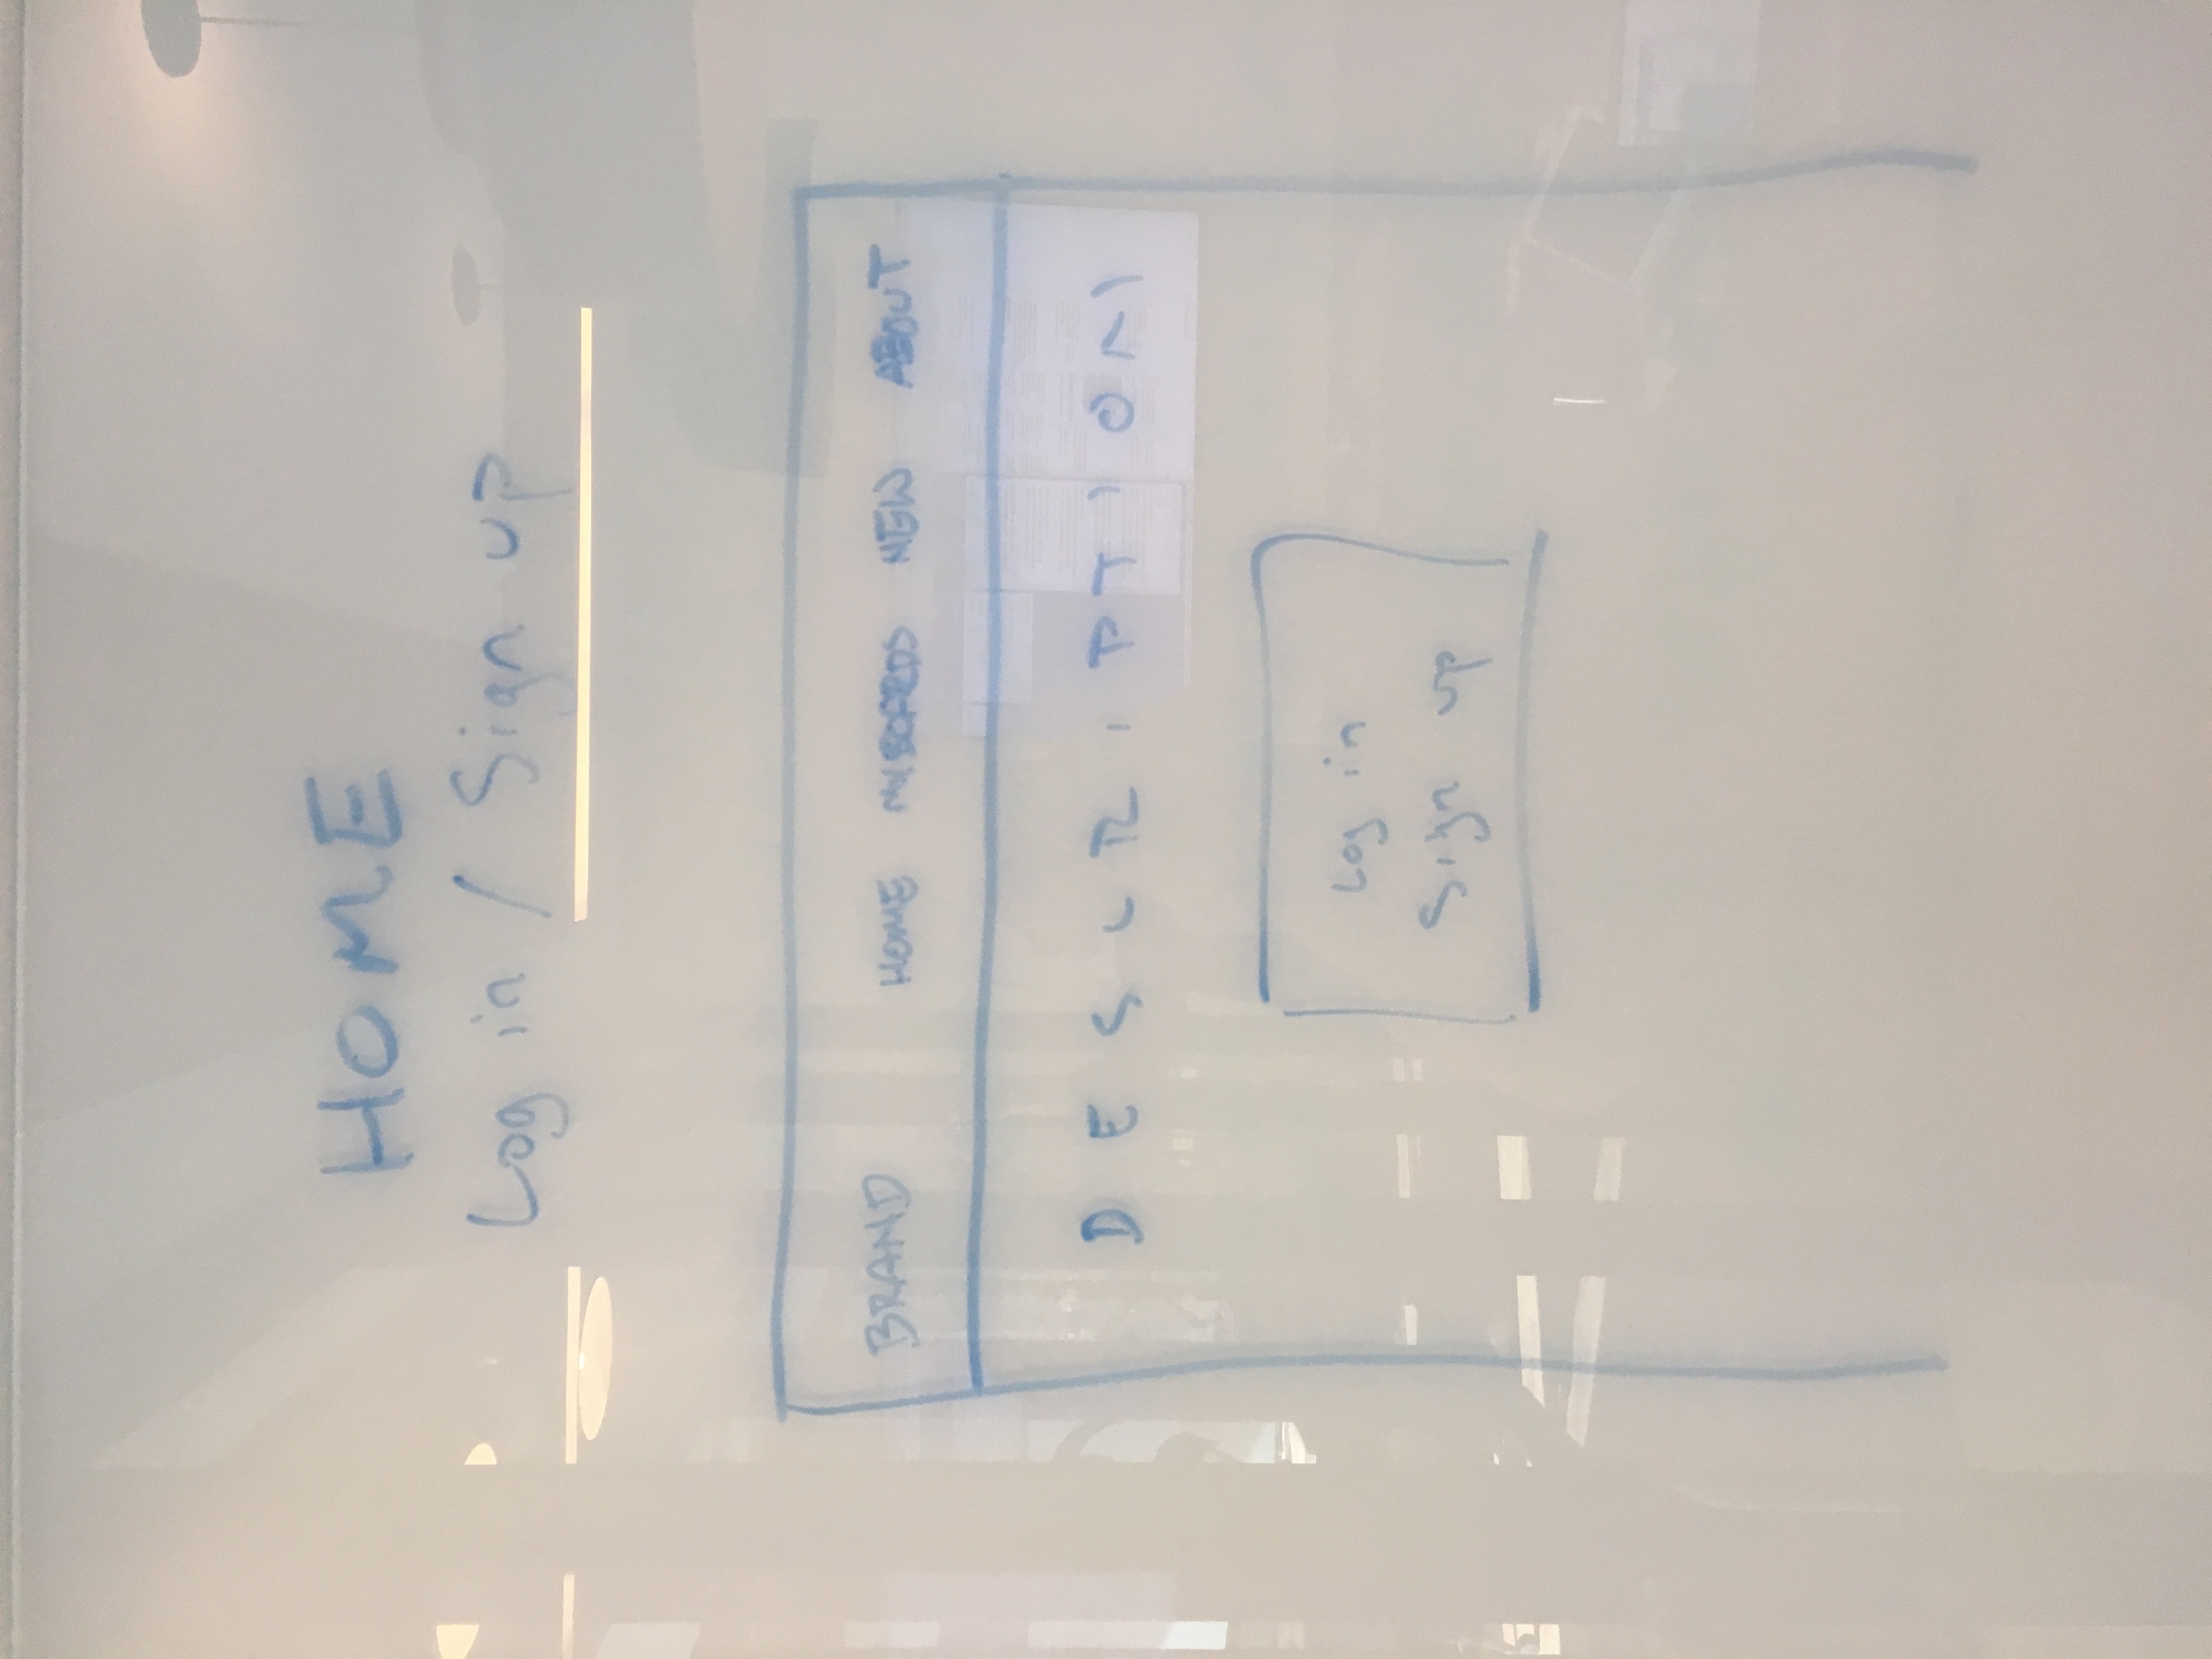 HOME
Log in / Sign up
BRAND HOME MY BOARDS NEW ABOUT
DESCRIPTION
Log in
Sign up